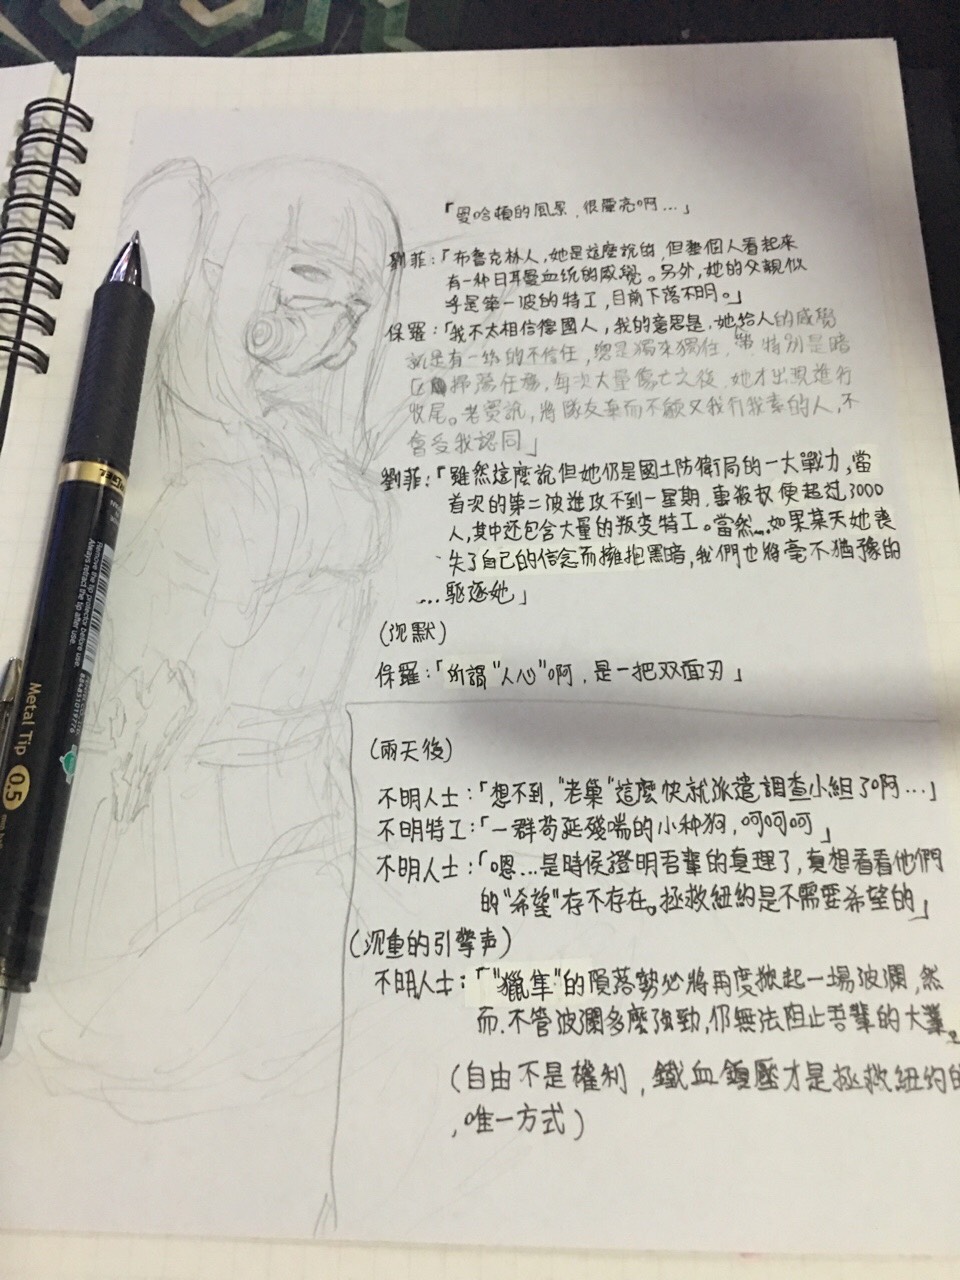 「曼哈頓的風景，很漂亮啊…」
劉菲：「布魯克林人，她是這麼說的，但整個人看起來
有一种日耳曼血統的感覺。另外，她的父親似
乎是第一波的特工，目前下落不明。」
保羅：「我不太相信德國人，我的意思是，她給人的感覺
就是有一絲的不信任，總是獨來獨往，特別是暗
區掃蕩任務，每次大量傷亡之後，她才出現進行
收尾。老實說，將隊友棄而不顧又我行我素的人，不
會受我認同」
劉菲：「雖然這麼說但她仍是國土防衛局的一大戰力，當
首次的第二波進攻不到一星期，聶殺叔便超过3000
人，其中还包含大量的叛变特工。當然…如果某天她喪
失了自己的信念而擁抱黑暗，我們也將毫不猶豫的
…駆逐她」
(沉默)
保羅：「所謂"人心"啊，是一把双面刃」
(兩天後)
不明人士：「想不到，"老巢"這麼快就派遣調查小組了啊…」
不明特工：「一群苟延殘喘的小种狗，呵呵呵」
不明人士：「嗯…是時候證明吾輩的真理了，真想看看他們
的"希望"存不存在。拯救紐約是不需要希望的」
(沉重的引擎声)
不明人士：「"獵隼"的隕落勢必將再度掀起一場波瀾，然
而，不管波瀾多麼強勁，仍無法阻止吾輩的大業。
(自由不是權利，鐵血鎮壓才是拯救紐約的
，唯一方式)
Metal Tip 0.5
Remove the tip protector before use.
Always retract the tip after use.